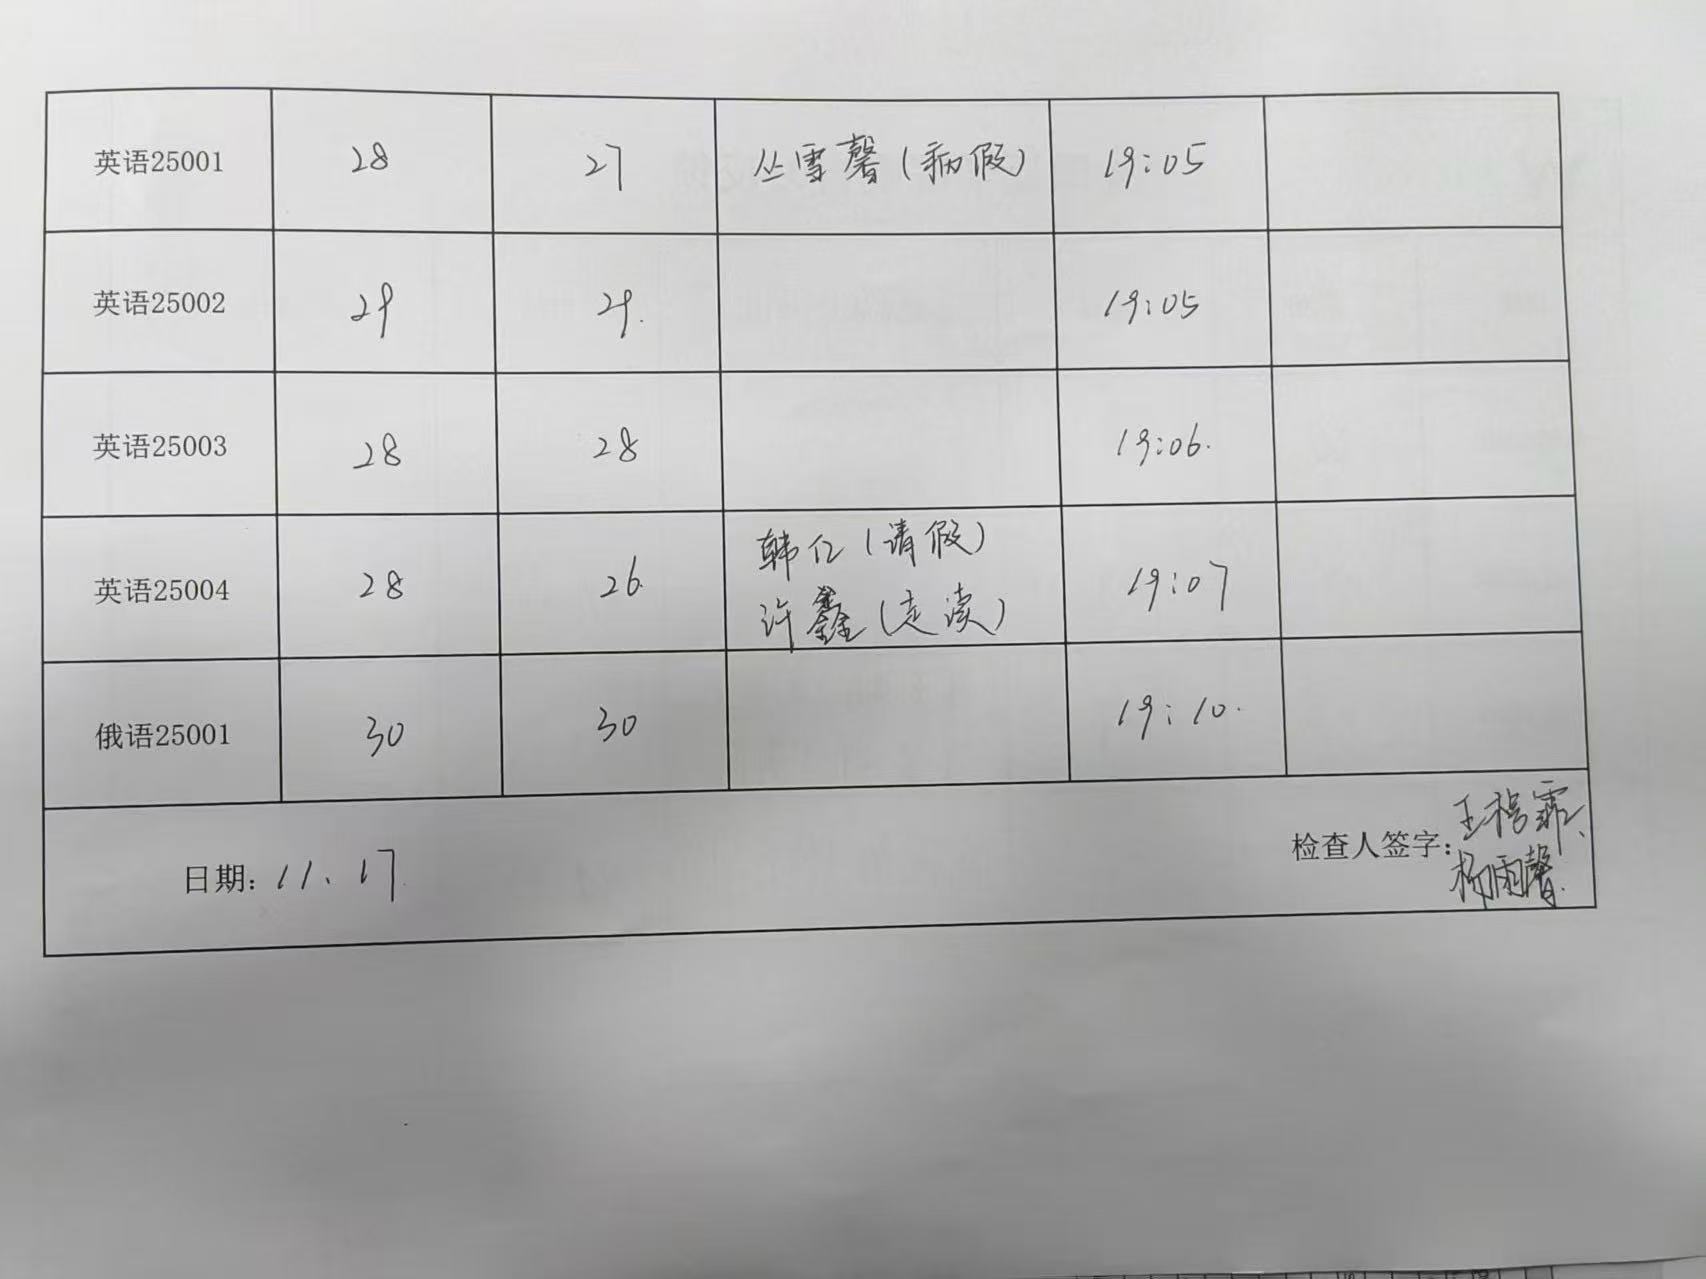 英语25001 28 27 丛雪馨(病假) 19:05
英语25002 29 29. 19:05
英语25003 28 28 19:06.
英语25004 28 26. 韩仁(请假) 19:07
许鑫(走读)
俄语25001 30 30 19:10.
日期: 11.17. 检查人签字: 王榕霏、
杨雨馨.